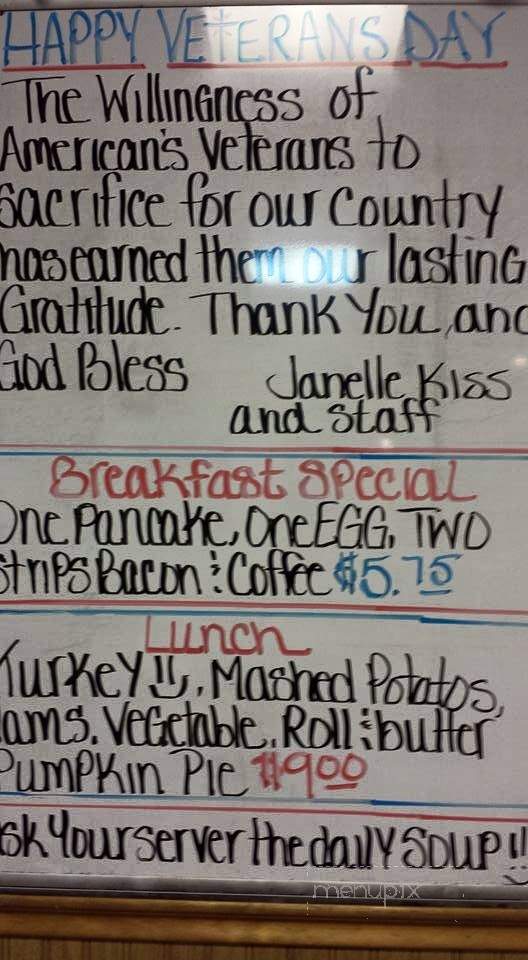 HAPPY VETERANS DAY
The Willingness of
American's Veterans to
Sacrifice for our Country
has earned them our lasting
Gratitude. Thank You, and
God Bless Janelle Kiss
and staff
Breakfast Special
One Pancake, One EGG, TWO
Strips Bacon & Coffee $5.75
Lunch
Turkey, Mashed Potatos,
Yams, Vegetable, Roll & butter
Pumpkin Pie $9.00
Ask Your server the daily SOUP!!
menupix